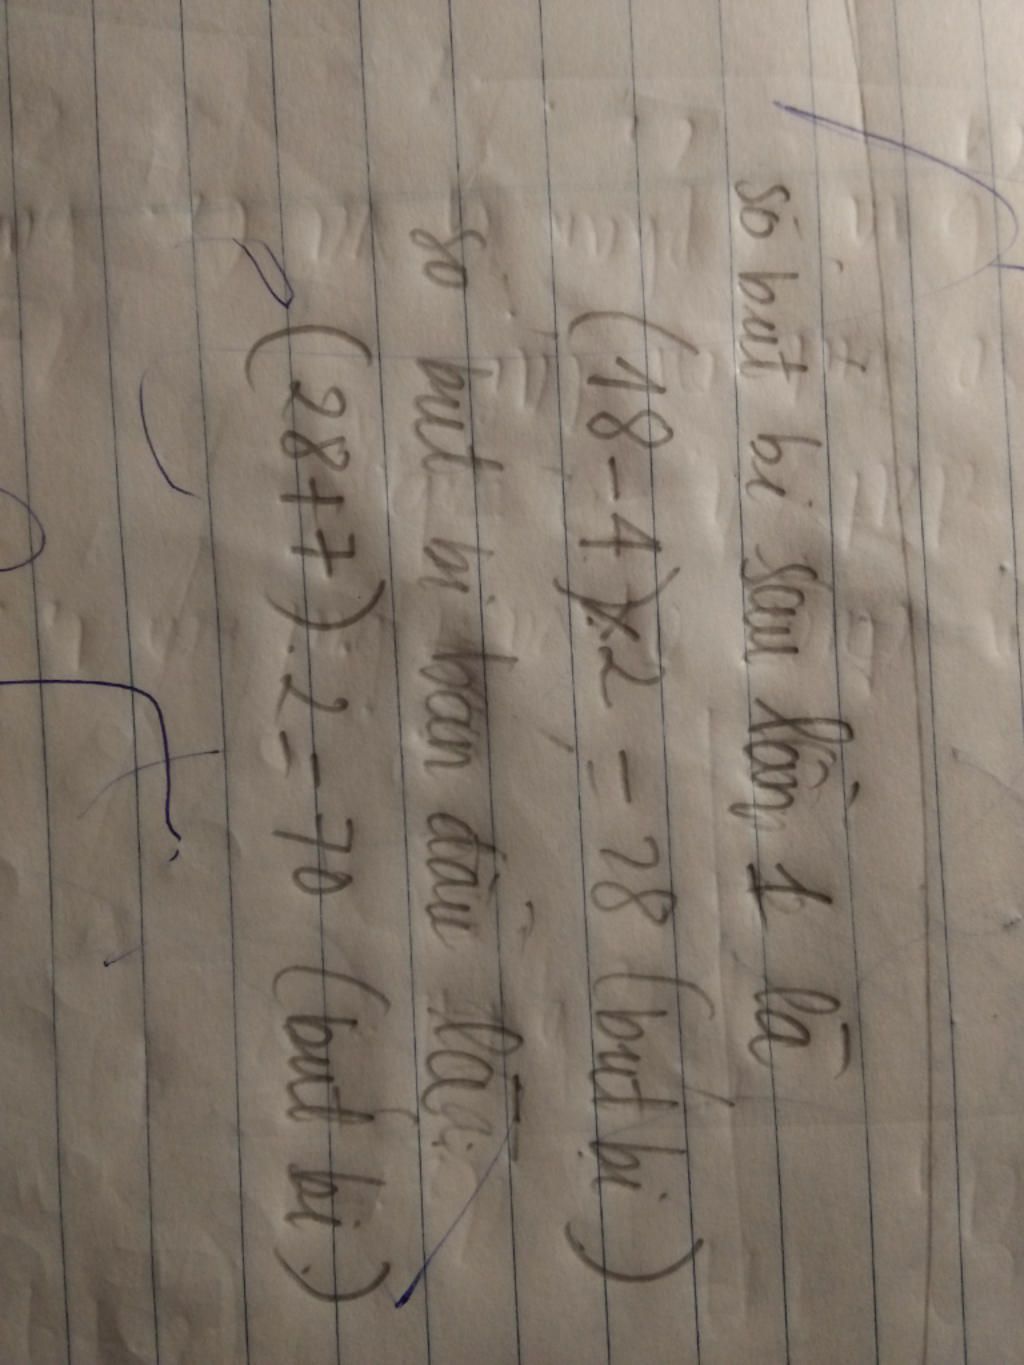 số bút bi sau lần 1 là
(18-4)x2 = 28 (bút bi)
số bút bi ban đầu là:
(28+7).2 = 70 (bút bi)